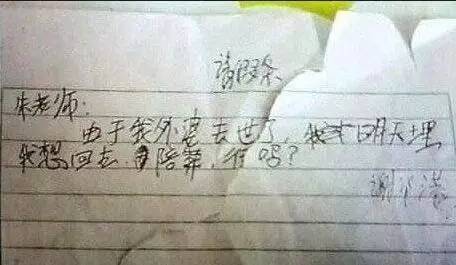 请假条
朱老师：
由于我外婆去世了，我才明天埋
我想回去陪葬，行吗？
谢